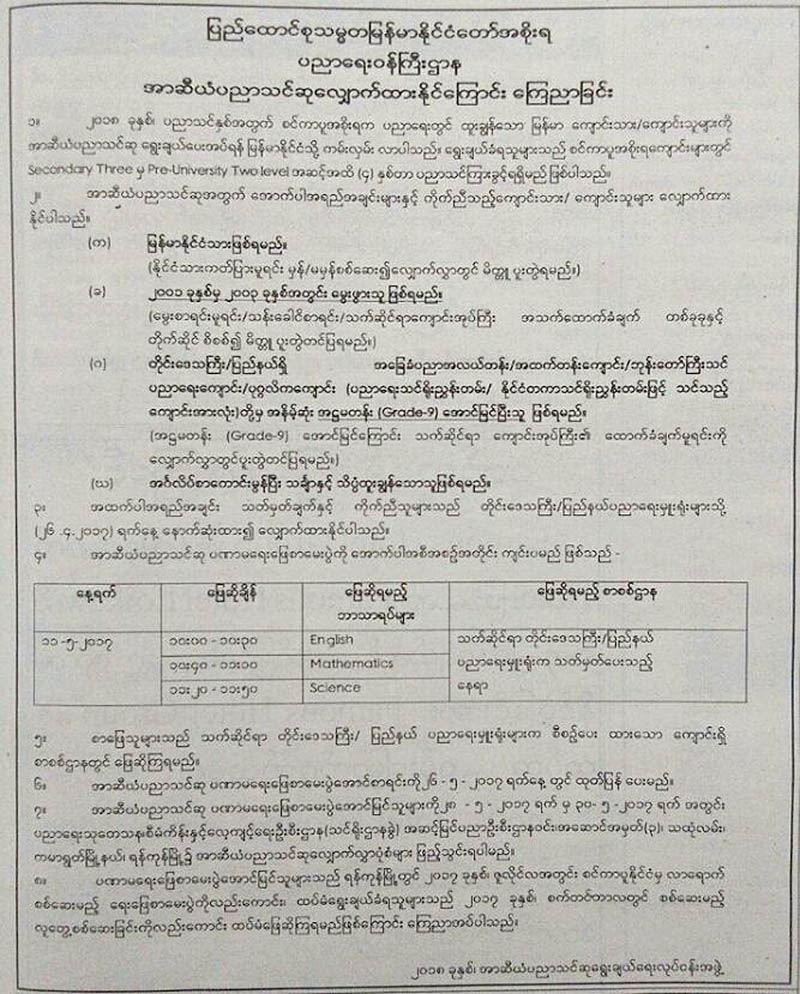 ပြည်ထောင်စုသမ္မတမြန်မာနိုင်ငံတော်အစိုးရ
ပညာရေးဝန်ကြီးဌာန
အာဆီယံပညာသင်ဆုလျှောက်ထားနိုင်ကြောင်း ကြေညာခြင်း
၁။ ၂၀၁၈ ခုနှစ်၊ ပညာသင်နှစ်အတွက် စင်ကာပူအစိုးရက ပညာရေးတွင် ထူးချွန်သော မြန်မာ ကျောင်းသား/ကျောင်းသူများကို
အာဆီယံပညာသင်ဆု ရွေးချယ်ပေးအပ်ရန် မြန်မာနိုင်ငံသို့ ကမ်းလှမ်း လာပါသည်။ ရွေးချယ်ခံရသူများသည် စင်ကာပူအစိုးရကျောင်းများတွင်
Secondary Three မှ Pre-University Two level အဆင့်အထိ (၄) နှစ်တာ ပညာသင်ကြားခွင့်ရရှိမည်ဖြစ်ပါသည်။
၂။ အာဆီယံပညာသင်ဆုအတွက် အောက်ပါအရည်အချင်းများနှင့် ကိုက်ညီသည့်ကျောင်းသား/ ကျောင်းသူများ လျှောက်ထား
နိုင်ပါသည်။
(က) မြန်မာနိုင်ငံသားဖြစ်ရမည်။
(နိုင်ငံသားကတ်ပြားမူရင်း မှန်/မမှန်စစ်ဆေး၍လျှောက်လွှာတွင် မိတ္တူ ပူးတွဲရမည်။)
(ခ) ၂၀၀၁ ခုနှစ်မှ ၂၀၀၃ ခုနှစ်အတွင်း မွေးဖွားသူ ဖြစ်ရမည်။
(မွေးစာရင်းမူရင်း/သန်းခေါင်စာရင်း/သက်ဆိုင်ရာကျောင်းအုပ်ကြီး အသက်ထောက်ခံချက် တစ်ခုခုနှင့်
တိုက်ဆိုင် စိစစ်၍ မိတ္တူ ပူးတွဲတင်ပြရမည်။)
(ဂ) တိုင်းဒေသကြီး/ပြည်နယ်ရှိ အခြေခံပညာအလယ်တန်း/အထက်တန်းကျောင်း/ဘုန်းတော်ကြီးသင်
ပညာရေးကျောင်း/ပုဂ္ဂလိကကျောင်း (ပညာရေးသင်ရိုးညွှန်းတမ်း/ နိုင်ငံတကာသင်ရိုးညွှန်းတမ်းဖြင့် သင်သည့်
ကျောင်းအားလုံး)တို့မှ အနိမ့်ဆုံး အဋ္ဌမတန်း (Grade-9) အောင်မြင်ပြီးသူ ဖြစ်ရမည်။
(အဋ္ဌမတန်း (Grade-9) အောင်မြင်ကြောင်း သက်ဆိုင်ရာ ကျောင်းအုပ်ကြီး၏ ထောက်ခံချက်မူရင်းကို
လျှောက်လွှာတွင်ပူးတွဲတင်ပြရမည်။)
(ဃ) အင်္ဂလိပ်စာကောင်းမွန်ပြီး သင်္ချာနှင့် သိပ္ပံထူးချွန်သောသူဖြစ်ရမည်။
၃။ အထက်ပါအရည်အချင်း သတ်မှတ်ချက်နှင့် ကိုက်ညီသူများသည် တိုင်းဒေသကြီး/ပြည်နယ်ပညာရေးမှူးရုံးများသို့
(၂၆ .၄.၂၀၁၇) ရက်နေ့ နောက်ဆုံးထား၍ လျှောက်ထားနိုင်ပါသည်။
၄။ အာဆီယံပညာသင်ဆု ပဏာမရေးဖြေစာမေးပွဲကို အောက်ပါအစီအစဉ်အတိုင်း ကျင်းပမည် ဖြစ်သည် -
နေ့ရက် ဖြေဆိုချိန် ဖြေဆိုရမည့် ဘာသာရပ်များ ဖြေဆိုရမည့် စာစစ်ဌာန
၁၁ -၅-၂၀၁၇ ၁၀း၀၀ - ၁၀း၃၀ English သက်ဆိုင်ရာ တိုင်းဒေသကြီး/ပြည်နယ်
၁၀း၄၀ - ၁၁း၁၀ Mathematics ပညာရေးမှူးရုံးက သတ်မှတ်ပေးသည့်
၁၁း၂၀ - ၁၁း၅၀ Science နေရာ
၅။ စာဖြေသူများသည် သက်ဆိုင်ရာ တိုင်းဒေသကြီး/ ပြည်နယ် ပညာရေးမှူးရုံးများက စီစဉ်ပေး ထားသော ကျောင်းရှိ
စာစစ်ဌာနတွင် ဖြေဆိုကြရမည်။
၆။ အာဆီယံပညာသင်ဆု ပဏာမရေးဖြေစာမေးပွဲအောင်စာရင်းကို၂၆ - ၅ - ၂၀၁၇ ရက်နေ့ တွင် ထုတ်ပြန် ပေးမည်။
၇။ အာဆီယံပညာသင်ဆု ပဏာမရေးဖြေစာမေးပွဲအောင်မြင်သူများကို၂၈ - ၅ - ၂၀၁၇ ရက် မှ ၃၀- ၅ -၂၀၁၇ ရက် အတွင်း
ပညာရေးသုတေသန၊စီမံကိန်းနှင့်လေ့ကျင့်ရေးဦးစီးဌာန(သင်ရိုးဌာနခွဲ) အဆင့်မြင့်ပညာဦးစီးဌာနဝင်း၊အဆောင်အမှတ်(၃)၊ သထုံလမ်း၊
ကမာရွတ်မြို့နယ်၊ ရန်ကုန်မြို့၌ အာဆီယံပညာသင်ဆုလျှောက်လွှာပုံစံများ ဖြည့်သွင်းရပါမည်။
၈။ ပဏာမရေးဖြေစာမေးပွဲအောင်မြင်သူများသည် ရန်ကုန်မြို့တွင် ၂၀၁၇ ခုနှစ်၊ ဇူလိုင်လအတွင်း စင်ကာပူနိုင်ငံမှ လာရောက်
စစ်ဆေးမည့် ရေးဖြေစာမေးပွဲကိုလည်းကောင်း၊ ထပ်မံရွေးချယ်ခံရသူများသည် ၂၀၁၇ ခုနှစ်၊ စက်တင်ဘာလတွင် စစ်ဆေးမည့်
လူတွေ့စစ်ဆေးခြင်းကိုလည်းကောင်း ထပ်မံဖြေဆိုကြရမည်ဖြစ်ကြောင်း ကြေညာအပ်ပါသည်။
၂၀၁၈ ခုနှစ်၊ အာဆီယံပညာသင်ဆုရွေးချယ်ရေးလုပ်ငန်းအဖွဲ့